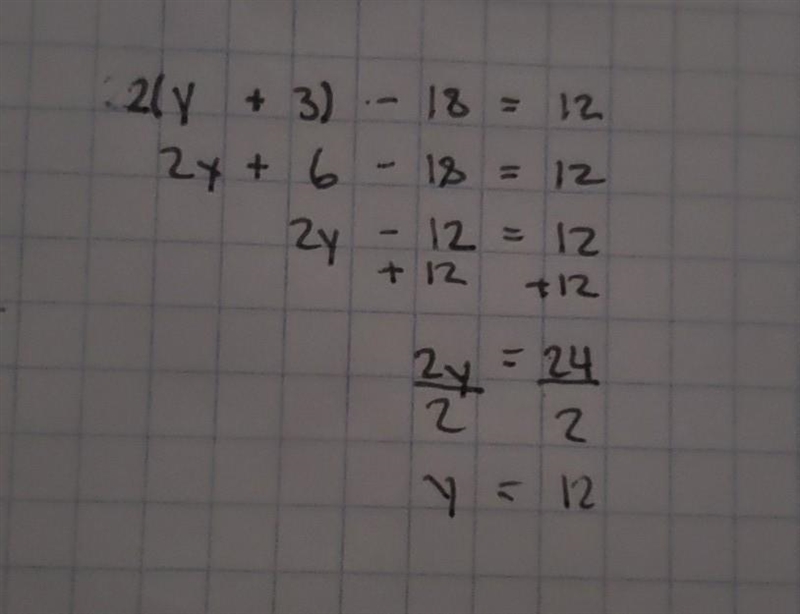 2(y + 3) - 18 = 12
2y + 6 - 18 = 12
2y - 12 = 12
+ 12 +12
2y = 24
2 2
y = 12